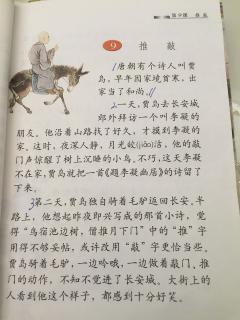 第9课 推敲
9 推敲
1唐朝有个诗人叫贾
岛,早年因家境贫寒,出
家当了和尚。//
2一天,贾岛去长安城
郊外拜访一个叫李凝的
朋友。他沿着山路找了好久,才摸到李凝的
家。这时,夜深人静,月光皎(jiǎo)洁,他的敲
门声惊醒了树上沉睡的小鸟。不巧,这天李凝
不在家,贾岛就把一首《题李凝幽居》的诗留了
下来。
3第二天,贾岛独自骑着毛驴返回长安。半
路上,他想起昨夜即兴写成的那首小诗,觉
得“鸟宿池边树,僧推月下门”中的“推”字
用得不够妥帖,或许改用“敲”字更恰当些。
贾岛骑着毛驴,一边吟哦,一边做着敲门、推
门的动作,不知不觉进了长安城。大街上的
人看到他这个样子,都感到十分好笑。